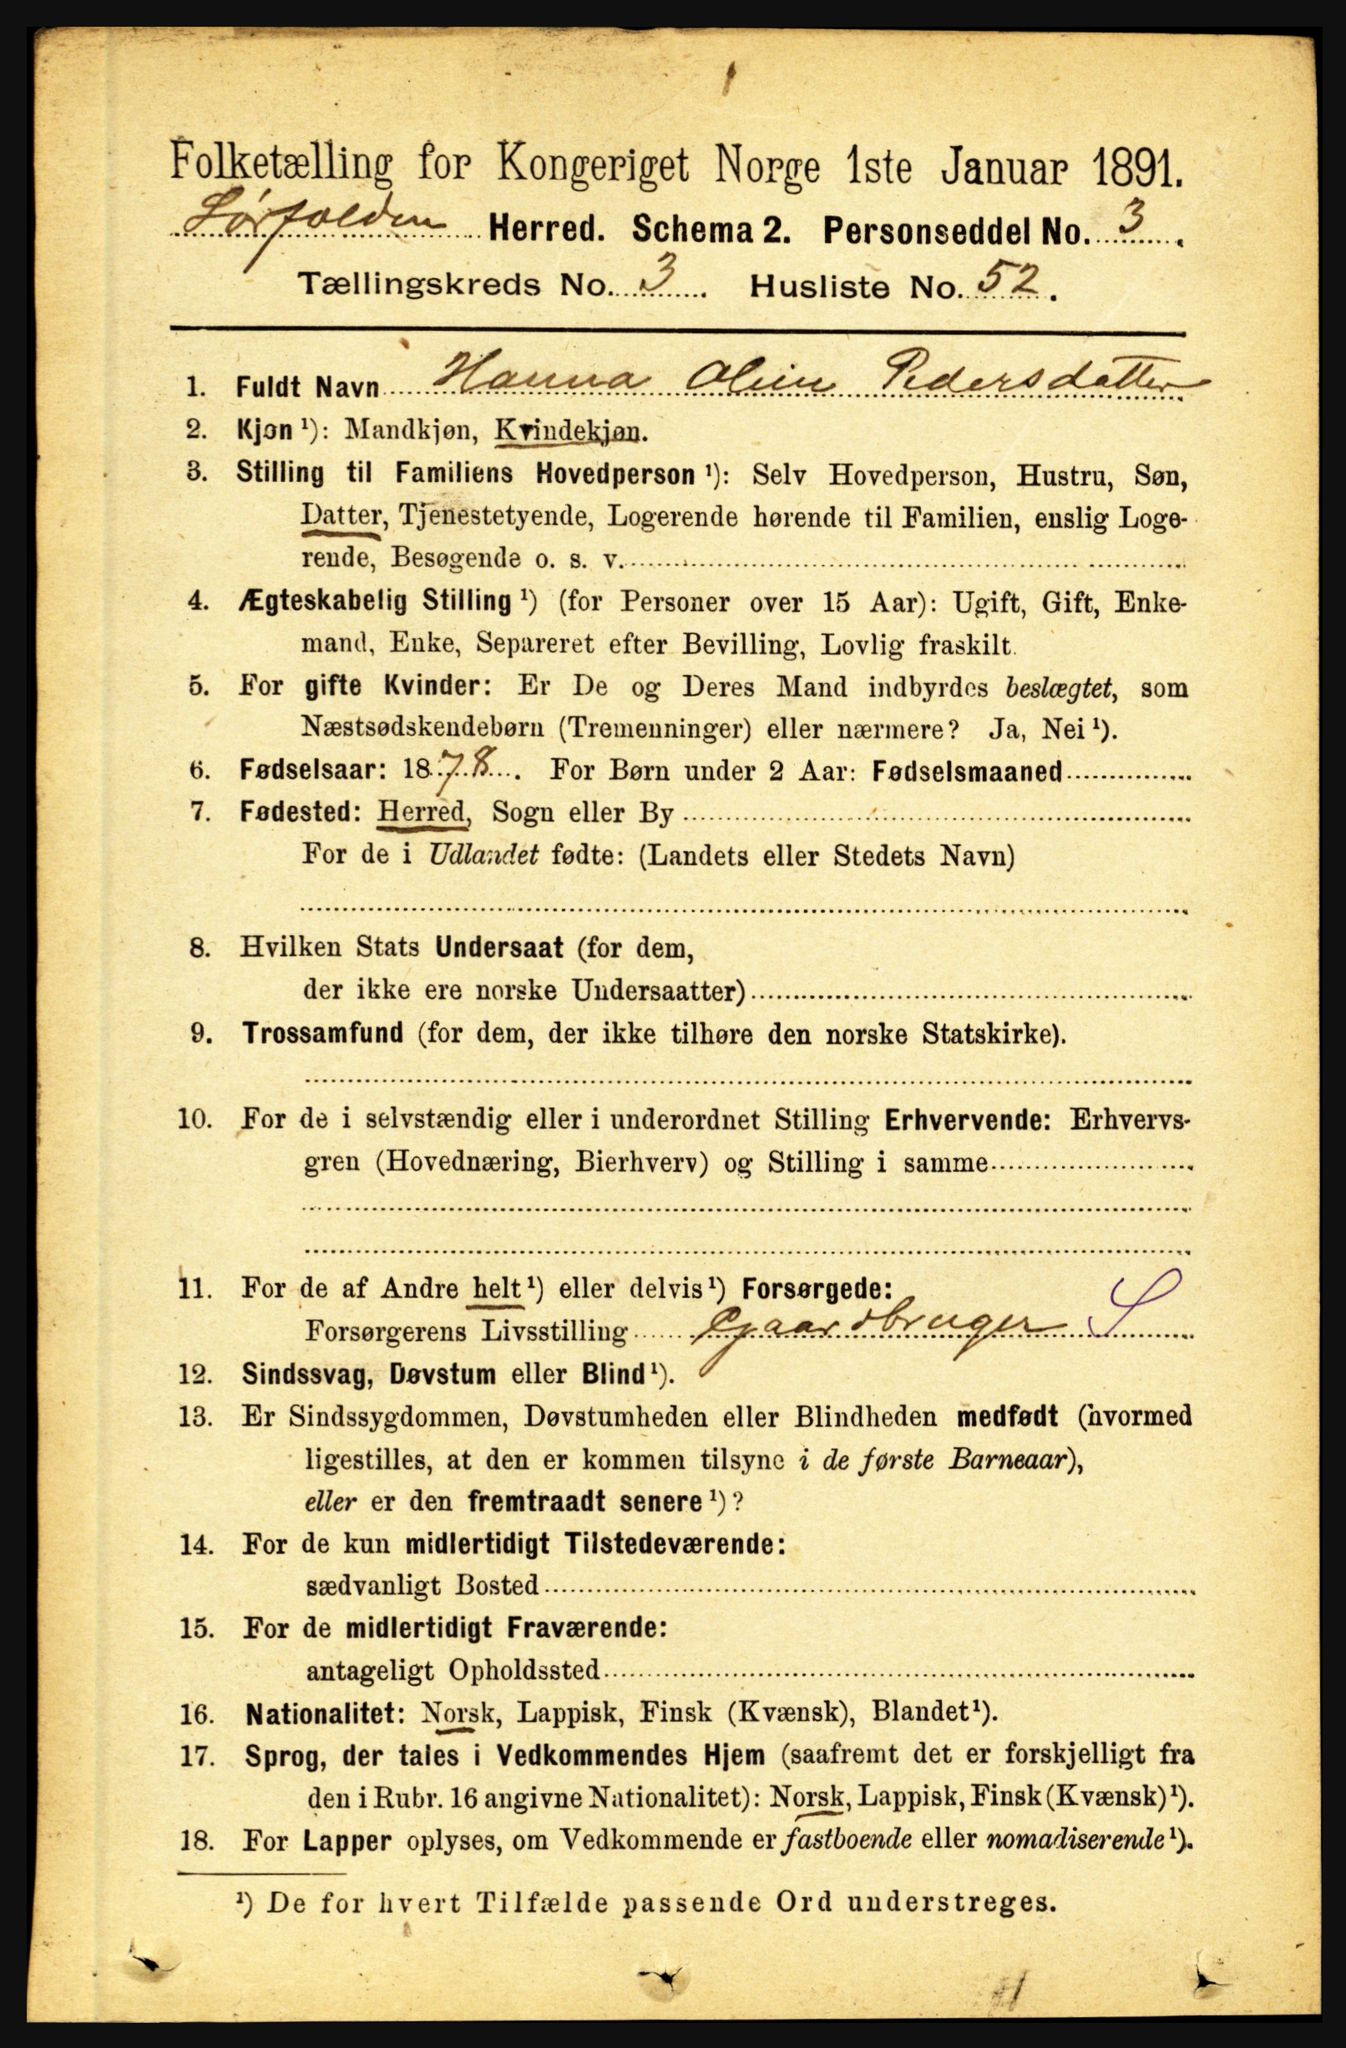 Folketælling for Kongeriget Norge 1ste Januar 1891.
Sørfolden Herred. Schema 2. Personseddel No. 3.
Tællingskreds No. 3. Husliste No. 52.
1. Fuldt Navn Hanna Oline Pedersdatter
2. Kjøn ¹): Mandkjøn, Kvindekjøn.
3. Stilling til Familiens Hovedperson ¹): Selv Hovedperson, Hustru, Søn,
Datter, Tjenestetyende, Logerende hørende til Familien, enslig Loge-
rende, Besøgende o. s. v.
4. Ægteskabelig Stilling ¹) (for Personer over 15 Aar): Ugift, Gift, Enke-
mand, Enke, Separeret efter Bevilling, Lovlig fraskilt.
5. For gifte Kvinder: Er De og Deres Mand indbyrdes beslægtet, som
Næstsødskendebørn (Tremenninger) eller nærmere? Ja, Nei ¹).
6. Fødselsaar: 1878. For Børn under 2 Aar: Fødselsmaaned
7. Fødested: Herred, Sogn eller By
For de i Udlandet fødte: (Landets eller Stedets Navn)
8. Hvilken Stats Undersaat (for dem,
der ikke ere norske Undersaatter)
9. Trossamfund (for dem, der ikke tilhøre den norske Statskirke).
10. For de i selvstændig eller i underordnet Stilling Erhvervende: Erhvervs-
gren (Hovednæring, Bierhverv) og Stilling i samme
11. For de af Andre helt ¹) eller delvis ¹) Forsørgede:
Forsørgerens Livsstilling Gaardbruger S
12. Sindssvag, Døvstum eller Blind ¹).
13. Er Sindssygdommen, Døvstumheden eller Blindheden medfødt (hvormed
ligestilles, at den er kommen tilsyne i de første Barneaar),
eller er den fremtraadt senere ¹)?
14. For de kun midlertidigt Tilstedeværende:
sædvanligt Bosted
15. For de midlertidigt Fraværende:
antageligt Opholdssted
16. Nationalitet: Norsk, Lappisk, Finsk (Kvænsk), Blandet ¹).
17. Sprog, der tales i Vedkommendes Hjem (saafremt det er forskjelligt fra
den i Rubr. 16 angivne Nationalitet): Norsk, Lappisk, Finsk (Kvænsk) ¹).
18. For Lapper oplyses, om Vedkommende er fastboende eller nomadiserende ¹).
¹) De for hvert Tilfælde passende Ord understreges.